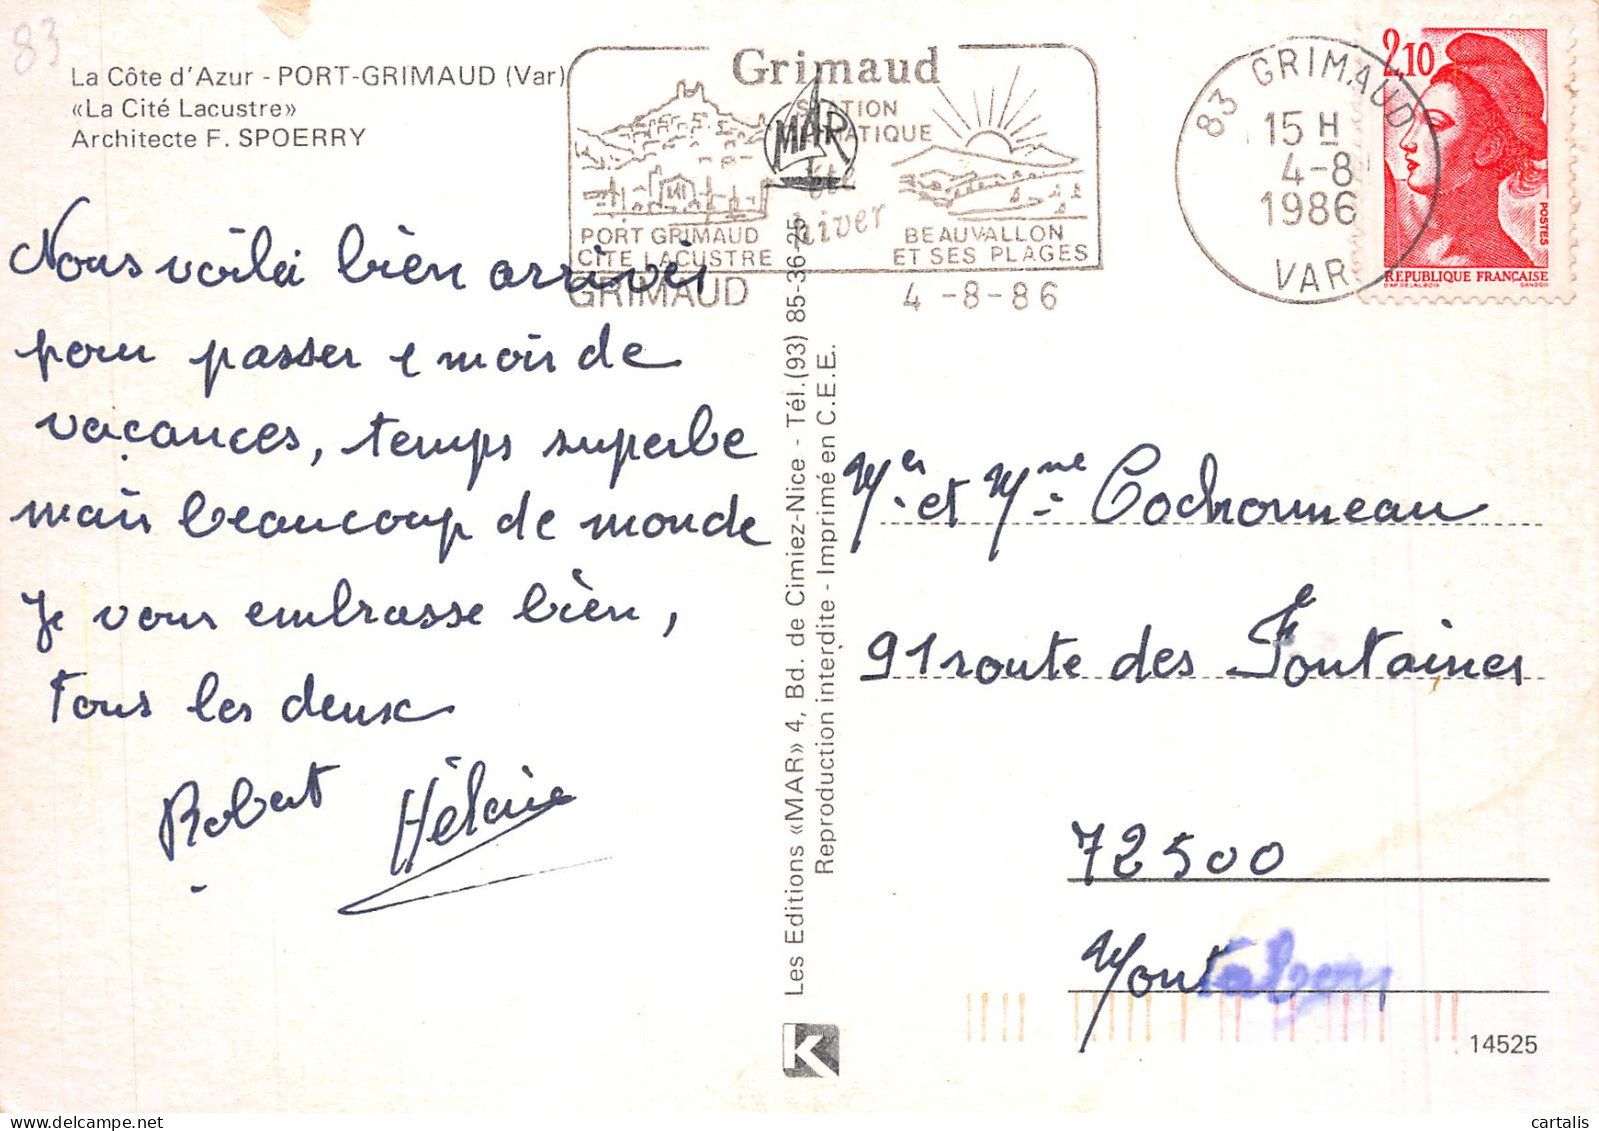 83
La Côte d'Azur - PORT-GRIMAUD (Var)
«La Cité Lacustre»
Architecte F. SPOERRY
Grimaud
STATION
MAR
été
hiver
PORT GRIMAUD
CITÉ LACUSTRE
BEAUVALLON
ET SES PLAGES
GRIMAUD
4-8-86
83 GRIMAUD
15 H
4-8
1986
VAR
2,10
POSTES
REPUBLIQUE FRANÇAISE
Nous voilà bien arrivés
pour passer 1 mois de
vacances, temps superbe
mais beaucoup de monde
Je vous embrasse bien,
Tous les deux
Robert Hélène
Les Editions «MAR» 4, Bd. de Cimiez-Nice - Tél.(93) 85-36-25
Reproduction interdite - Imprimé en C.E.E.
Mr. et Mme Cochonneau
91 route des Fontaines
72500
Mont
K
14525
cartalis